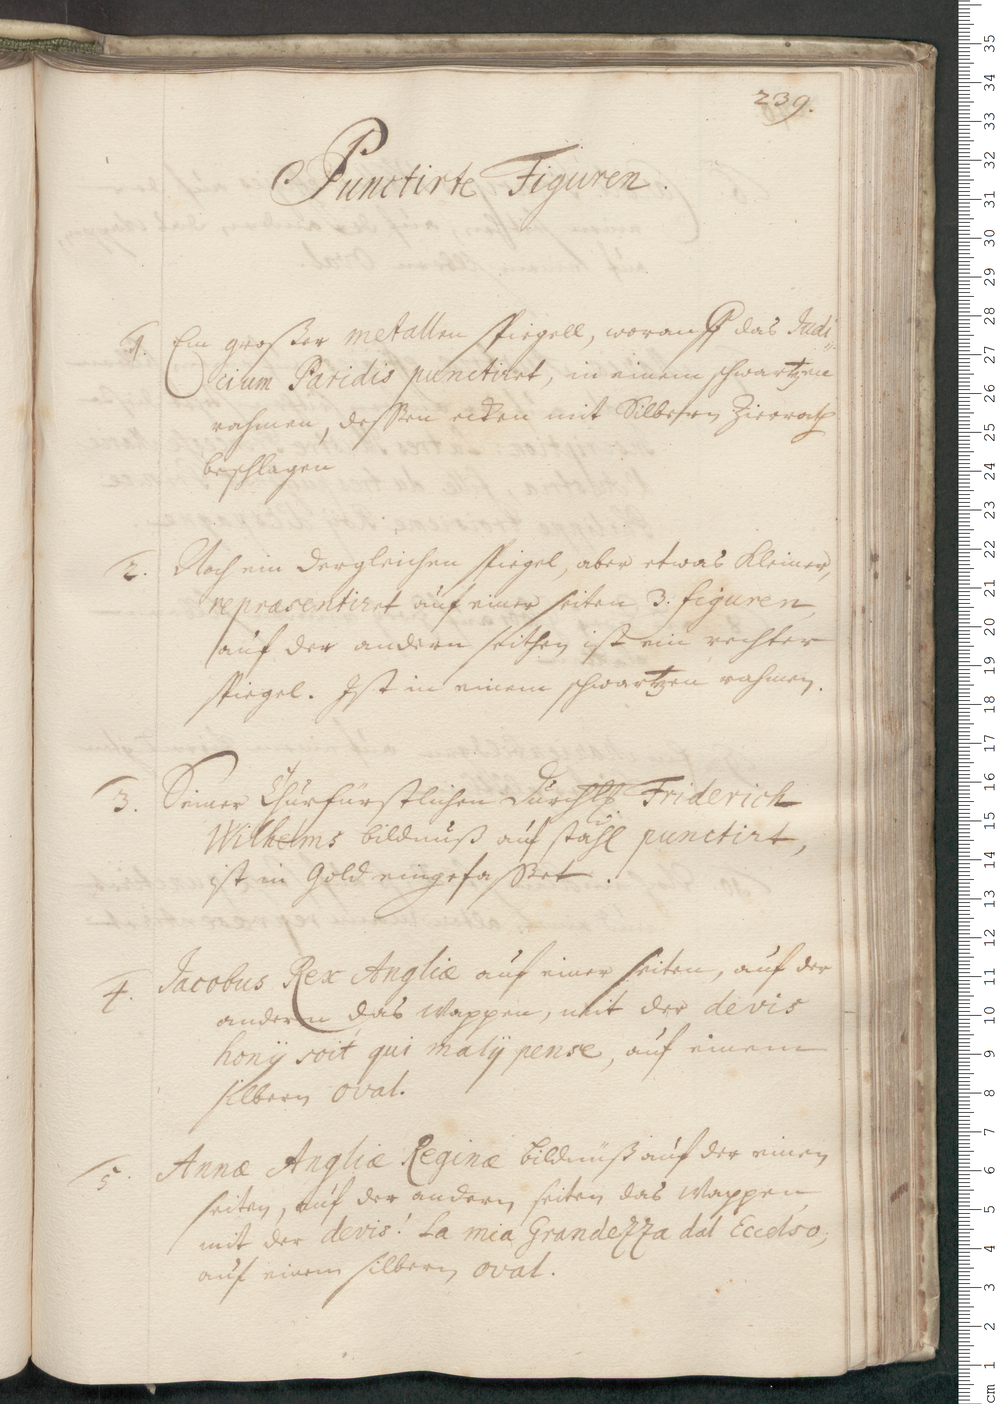 239.
Punctirte Figuren.
1. Ein großer metallen spiegell, worauf das Judi
cium Paridis punctiret, in einem schwartzen
rahmen, deßen ecken mit Silbern Zierrath
beschlagen
2. Noch ein dergleichen spiegel, aber etwas kleiner,
repræsentiret auf einer seiten 3. figuren,
auf der andern seithen ist ein rechter
spiegel. Ist in einem schwartzen rahmen.
3. Seiner Churfürstlichen Durchl. Friderich
Wilhelms bildnuß auf stahl punctirt,
ist in Gold eingefaßet.
4. Jacobus Rex Angliæ auf einer seiten, auf der
anderen das Wappen, mit der devis
honÿ soit qui malÿ pense, auf einem
silbern oval.
5. Annæ Angliæ Reginæ bildnüß auf der einen
seiten, auf der andern seiten das Wappen
mit der devis! La mia Grandezza dal Eccelso,
auf einem silbern oval.
35
34
33
32
31
30
29
28
27
26
25
24
23
22
21
20
19
18
17
16
15
14
13
12
11
10
9
8
7
6
5
4
3
2
1
cm